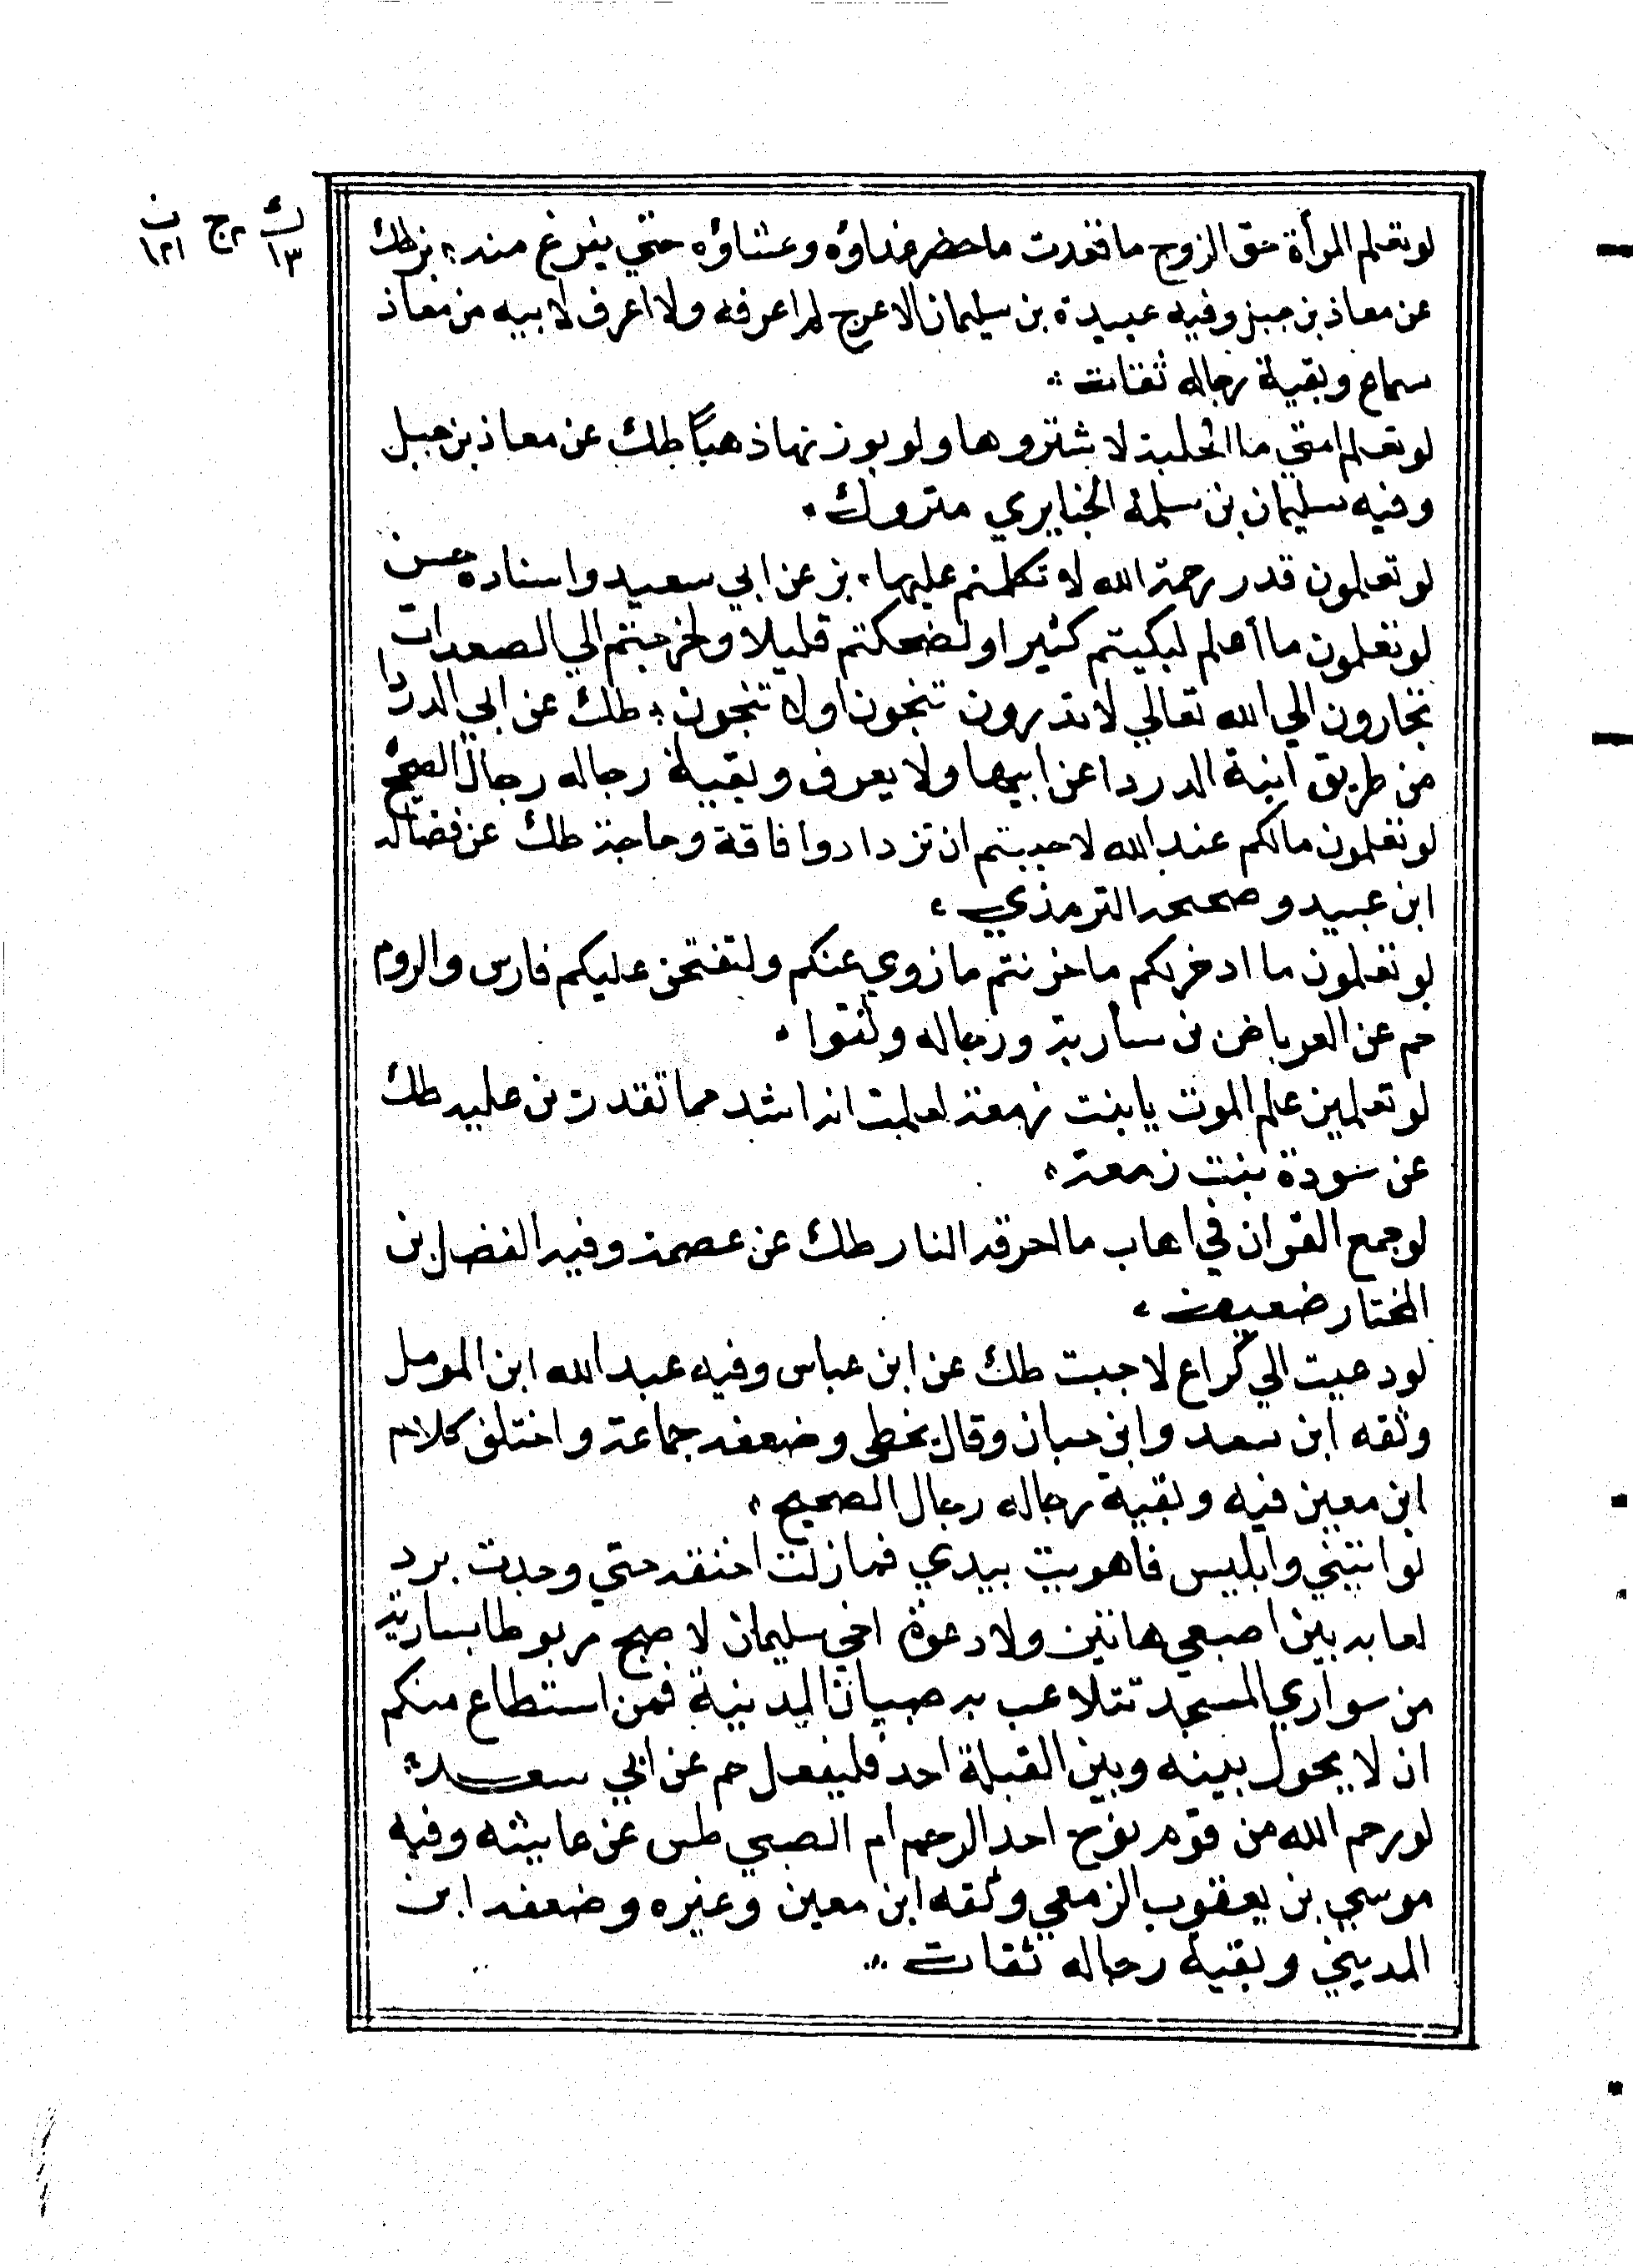 ك ج٢ ن
١٣ ١٢١
لو تعلم المرأة حق الزوج ما قعدت ما حضر غداؤه وعشاؤه حتي يفرغ منه بز طك
عن معاذ بن جبل وفيه عبيدة بن سليمان الاعرج لم اعرفه ولا اعرف لابيه من معاذ
سماع وبقية رجاله ثقات
لو تعلم امتي ما الحلبة لاشتروها ولو بوزنها ذهبًا طك عن معاذ بن جبل
وفيه سليمان بن سلمة الخبايري متروك
لو تعلمون قدر رحمة الله لاتكلتم عليها بز عن ابي سعيد واسناده حسن
لو تعلمون ما أعلم لبكيتم كثيرا ولضحكتم قليلا ولخرجتم الي الصعدات
تجارون الي الله تعالي لا تدرون تنجون اولا تنجون طك عن ابي الدردا
من طريق ابنة الدردا عن ابيها ولا يعرف وبقية رجاله رجال الصحيح
لو تعلمون مالكم عند الله لاحببتم ان تزدادوا فاقة وحاجة طك عن فضاله
ابن عبيد وصححه الترمذي
لو تعلمون ما ادخر لكم ما حزنتم ما زوي عنكم ولتفتحن عليكم فارس والروم
حم عن العرباض بن سارية ورجاله وثقوا
لو تعلمين علم الموت يا بنت زمعة لعلمت انه اشد مما تقدرين عليه طك
عن سودة بنت زمعة
لو جمع القران في اهاب ما احرقه النار طك عن عصمة وفيه الفضل بن
المختار ضعيف
لو دعيت الي كراع لاجبت طك عن ابن عباس وفيه عبد الله ابن المومل
وثقه ابن سعد وابن حبان وقال يخطي وضعفه جماعة واختلف كلام
ابن معين فيه وبقية رجاله رجال الصحيح
لو رايتني وابليس فاهويت بيدي فما زلت اخنقه حتي وجدت برد
لعابه بين اصبعي هاتين ولا دعوة اخي سليمان لاصبح مربوطا بسارية
من سواري المسجد تتلاعب به صبيان المدينة فمن استطاع منكم
ان لا يحول بينه وبين القبلة احد فليفعل حم عن ابي سعيد
لو رحم الله من قوم نوح احدا لرحم ام الصبي طس عن عايشه وفيه
موسي بن يعقوب الزمعي وثقه ابن معين وغيره وضعفه ابن
المديني وبقية رجاله ثقات